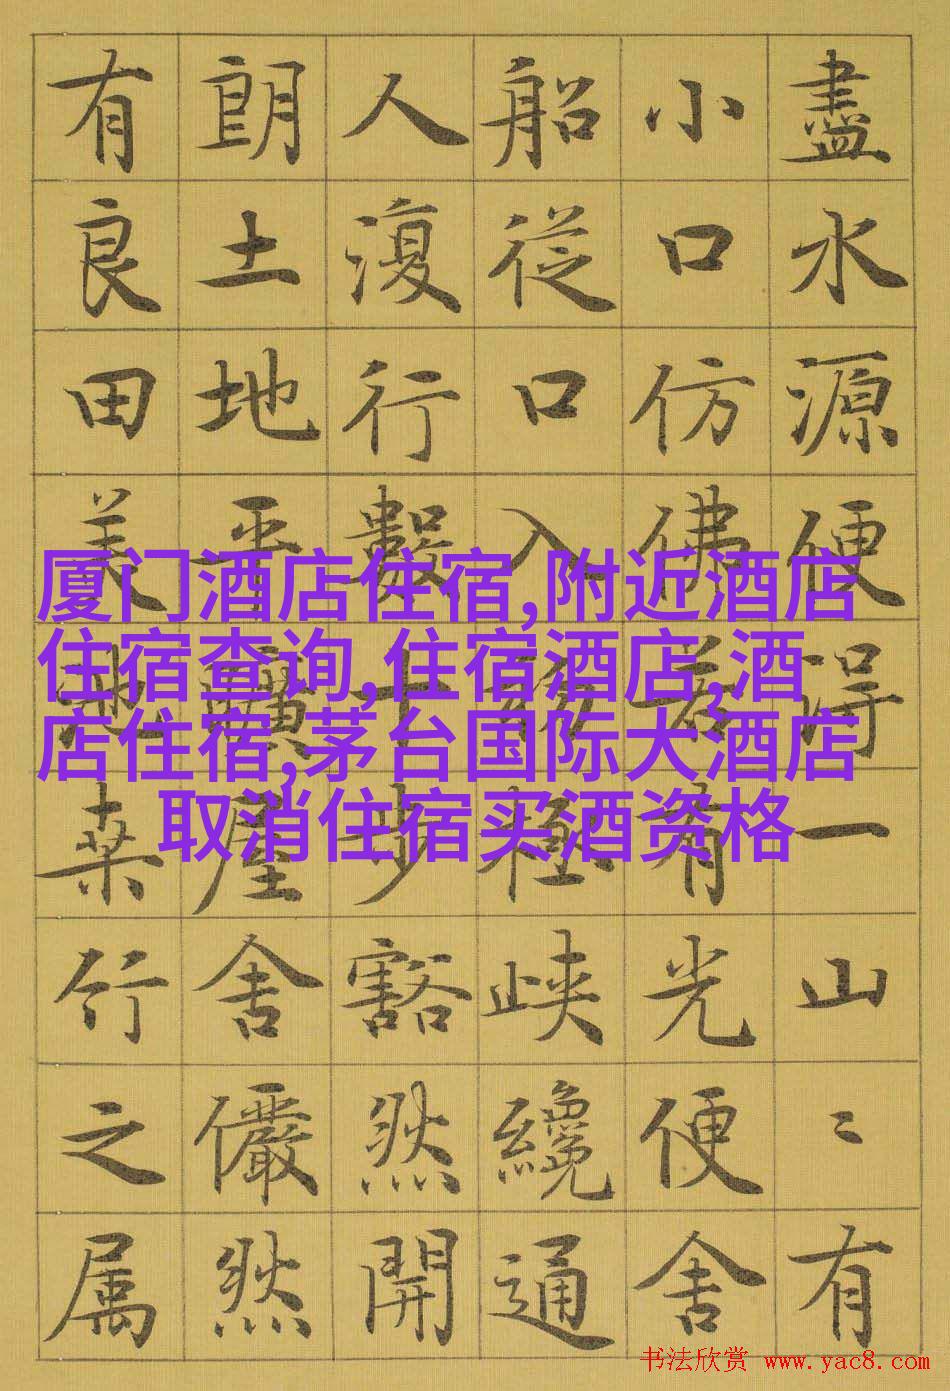 盡水源便得一山〻有
小口仿佛若有光便舍
船從口入初極峡纔通
人復行數十步豁然開
朗土地平曠屋舍儼然
有良田美池桑竹之属
厦门酒店住宿,附近酒店
住宿查询,住宿酒店,酒
店住宿,茅台国际大酒店
取消住宿买酒资格
书法欣赏 www.yac8.com